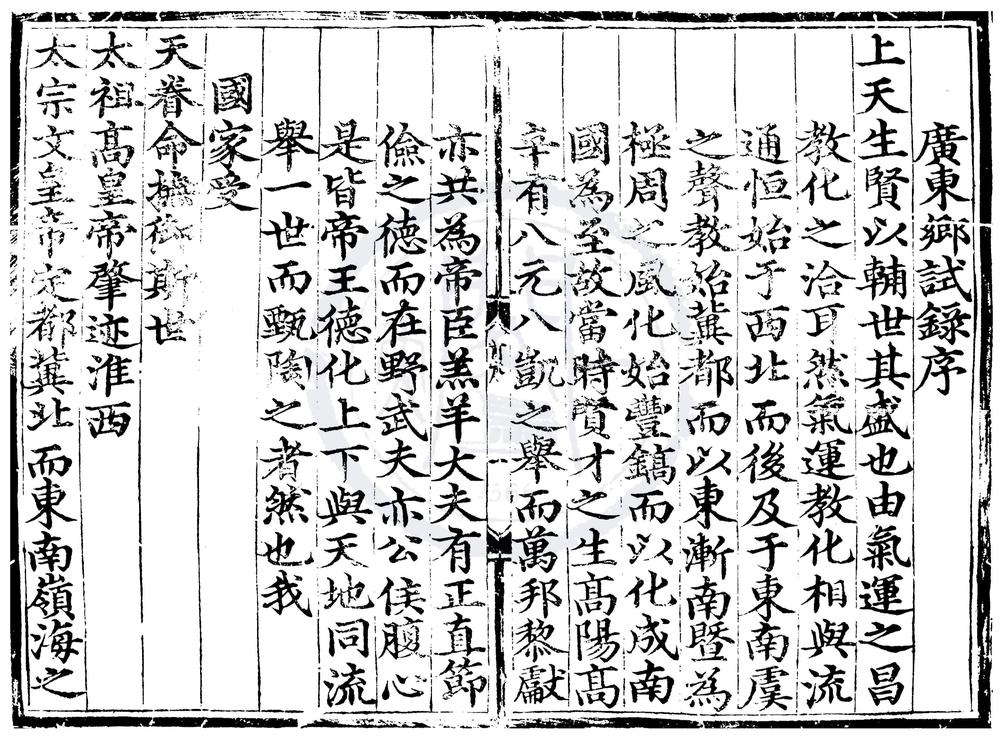 廣東鄉試錄序
上天生賢以輔世其盛也由氣運之昌
教化之洽耳然氣運教化相與流
通恒始于西北而後及于東南虞
之聲教始冀都而以東漸南暨為
極周之風化始豐鎬而以化成南
國為至故當時賢才之生高陽高
辛有八元八凱之舉而萬邦黎獻
亦共為帝臣羔羊大夫有正直節
儉之德而在野武夫亦公侯腹心
是皆帝王德化上下與天地同流
舉一世而甄陶之者然也我
國家受
天眷命撫御斯世
太祖高皇帝肇迹淮西
太宗文皇帝定都冀北而東南嶺海之